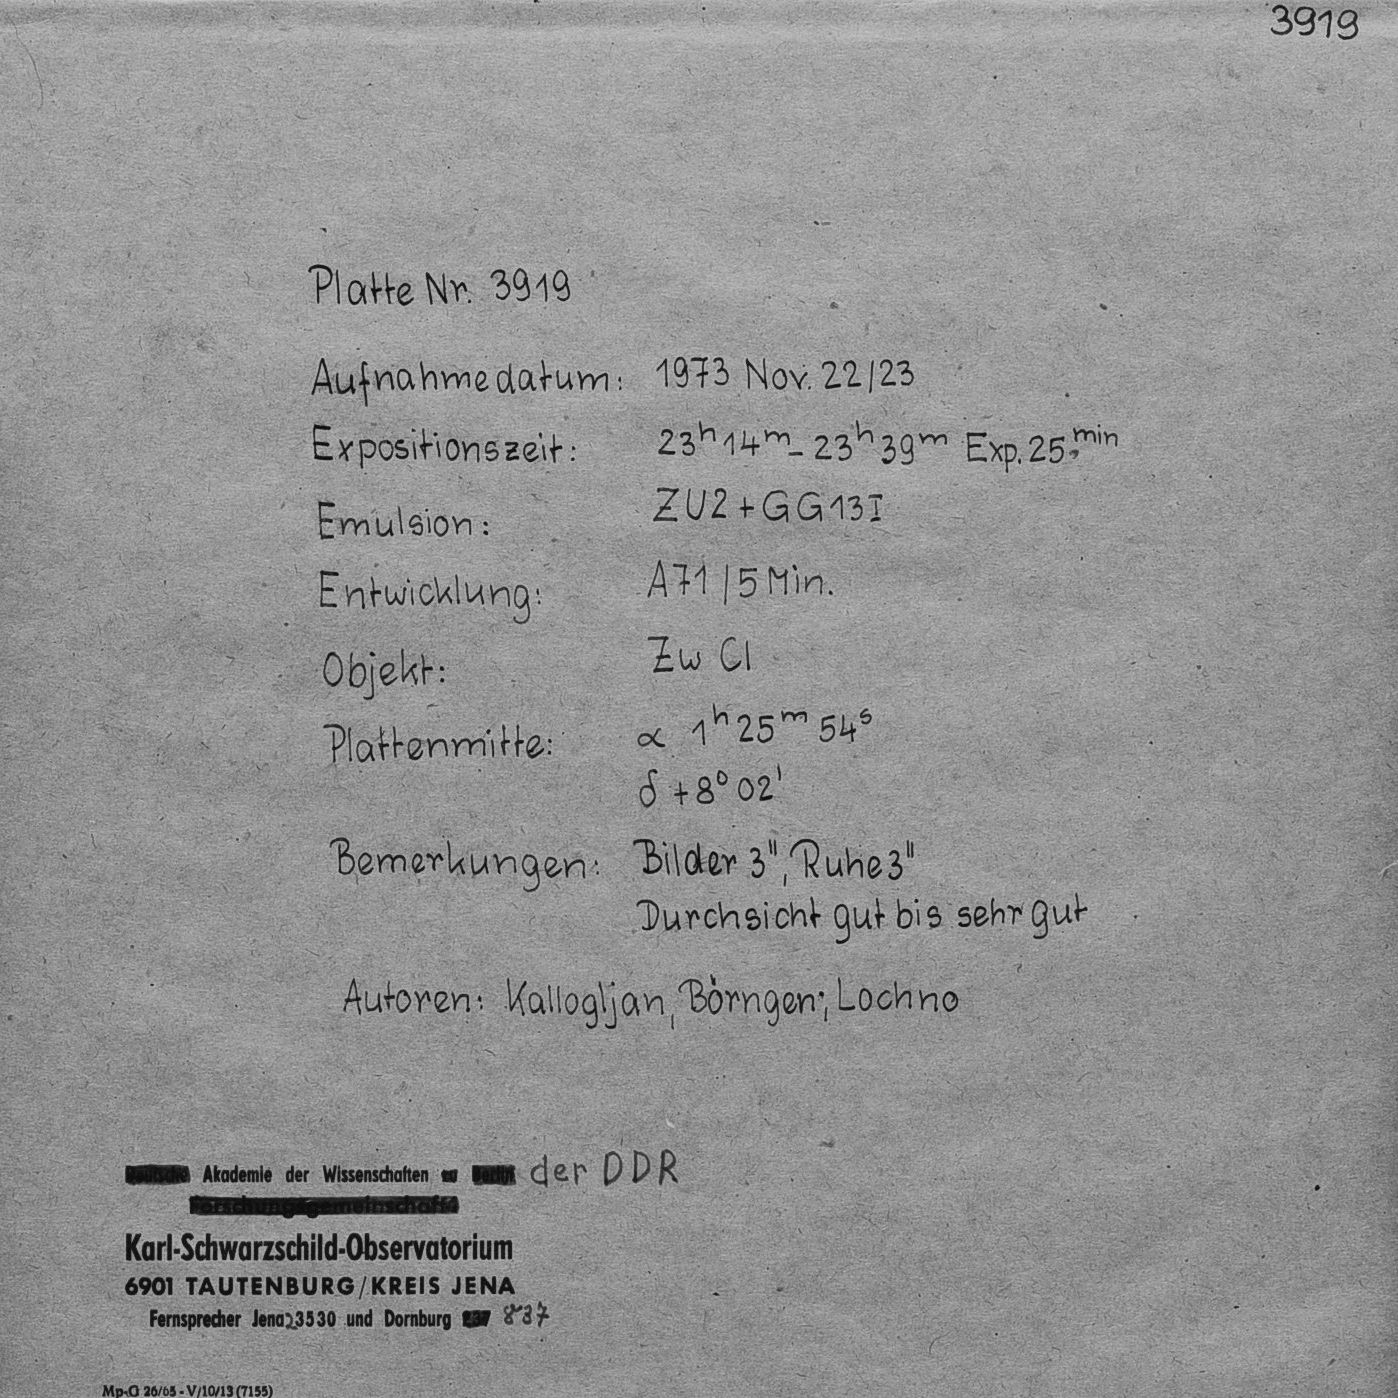 3919
Platte Nr. 3919
Aufnahmedatum: 1973 Nov. 22/23
Expositionszeit: 23ʰ14ᵐ – 23ʰ39ᵐ Exp. 25ᵐⁱⁿ
Emulsion: ZU2 + GG13I
Entwicklung: A71 / 5 Min.
Objekt: Zw Cl
Plattenmitte: α 1ʰ 25ᵐ 54ˢ
δ +8° 02'
Bemerkungen: Bilder 3", Ruhe 3"
Durchsicht gut bis sehr gut
Autoren: Kallogljan, Börngen, Lochno
Deutsche Akademie der Wissenschaften zu Berlin der DDR
Forschungsgemeinschaft
Karl-Schwarzschild-Observatorium
6901 TAUTENBURG/KREIS JENA
Fernsprecher Jena 23530 und Dornburg 837
Mp-G 26/65 - V/10/13 (7155)